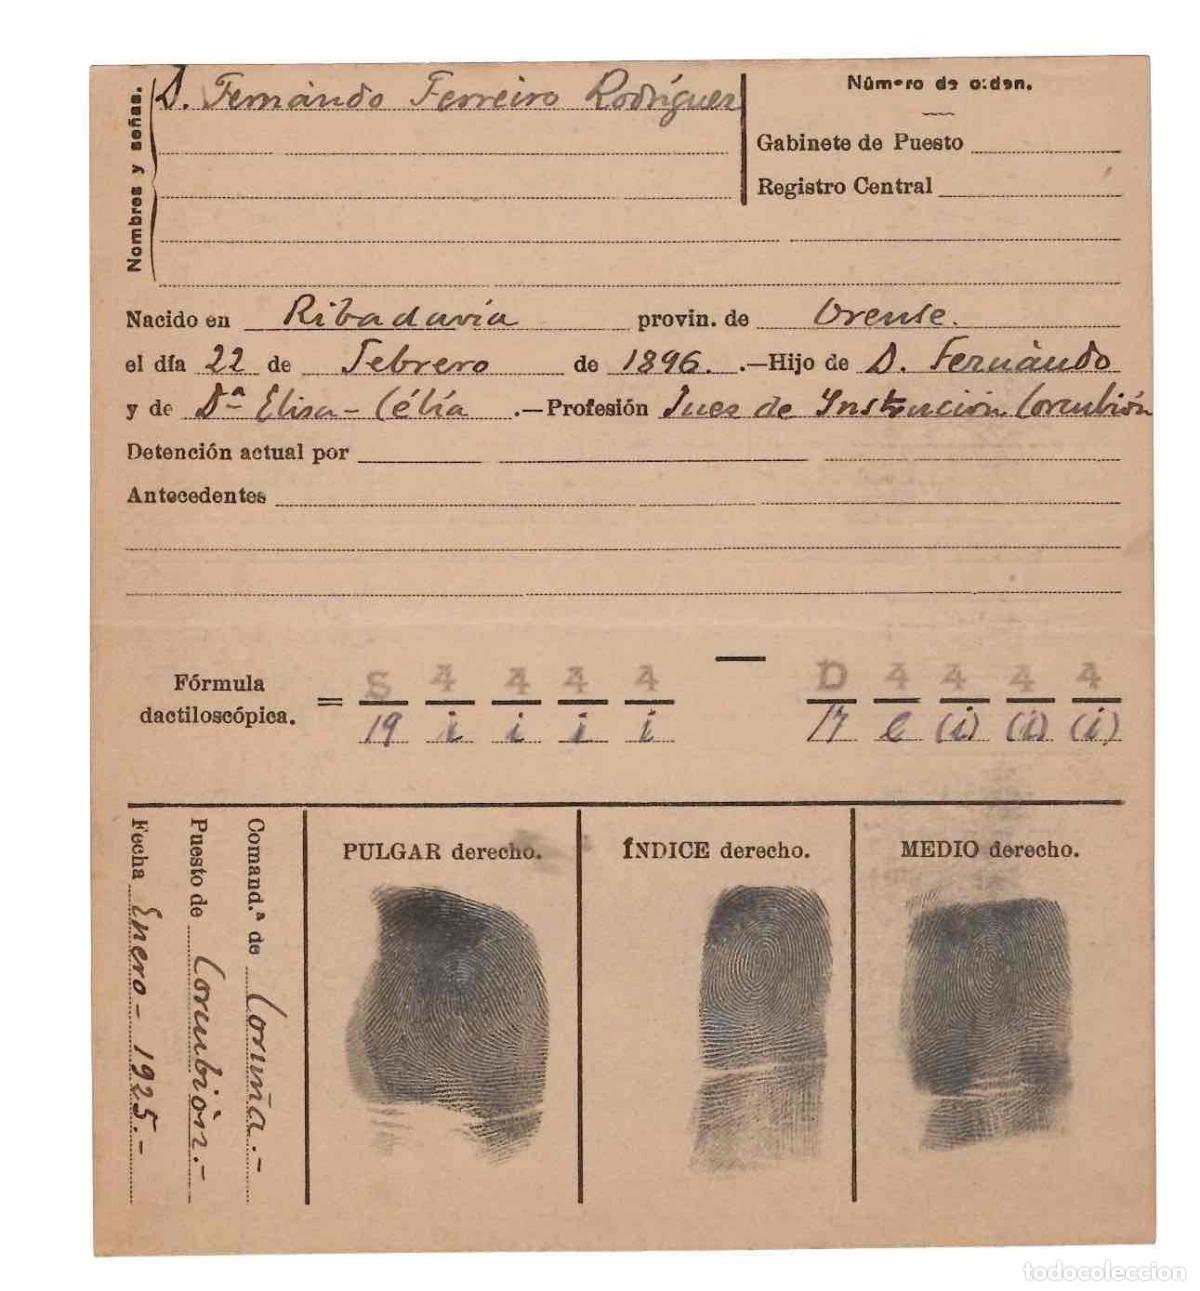 Nombres y señas.
D. Fernàndo Ferreiro Rodríguez
Núm-ro de o:den.
Gabinete de Puesto
Registro Central
Nacido en Ribadavia provin. de Orense.
el día 22 de Febrero de 1896. .—Hijo de D. Fernàndo
y de Dª Elisa-Célía .—Profesión Juez de Instrucción Corcubión
Detención actual por
Antecedentes
Fórmula dactiloscópica. = S 4 4 4 4 — D 4 4 4 4
19 i i i i 17 e (i) (i) (i)
Comand.ª de Coruña.-
Puesto de Corcubiòn.-
Fecha Enero - 1925.-
PULGAR derecho.
ÍNDICE derecho.
MEDIO derecho.
todocoleccion